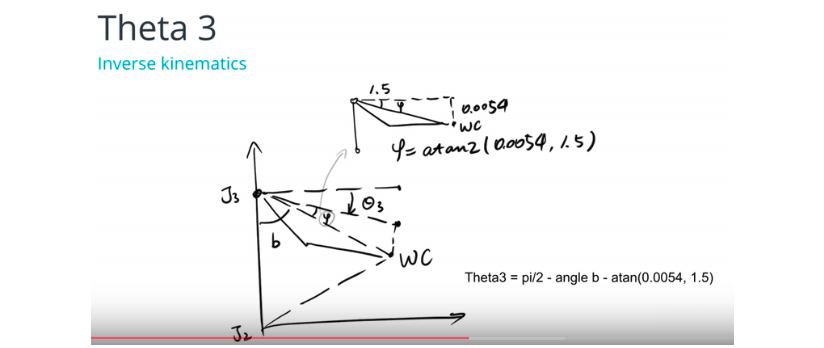 Theta 3
Inverse kinematics
1.5
φ
0.0054
WC
φ= atan2(0.0054, 1.5)
J3
θ3
φ
b
WC
Theta3 = pi/2 - angle b - atan(0.0054, 1.5)
J2